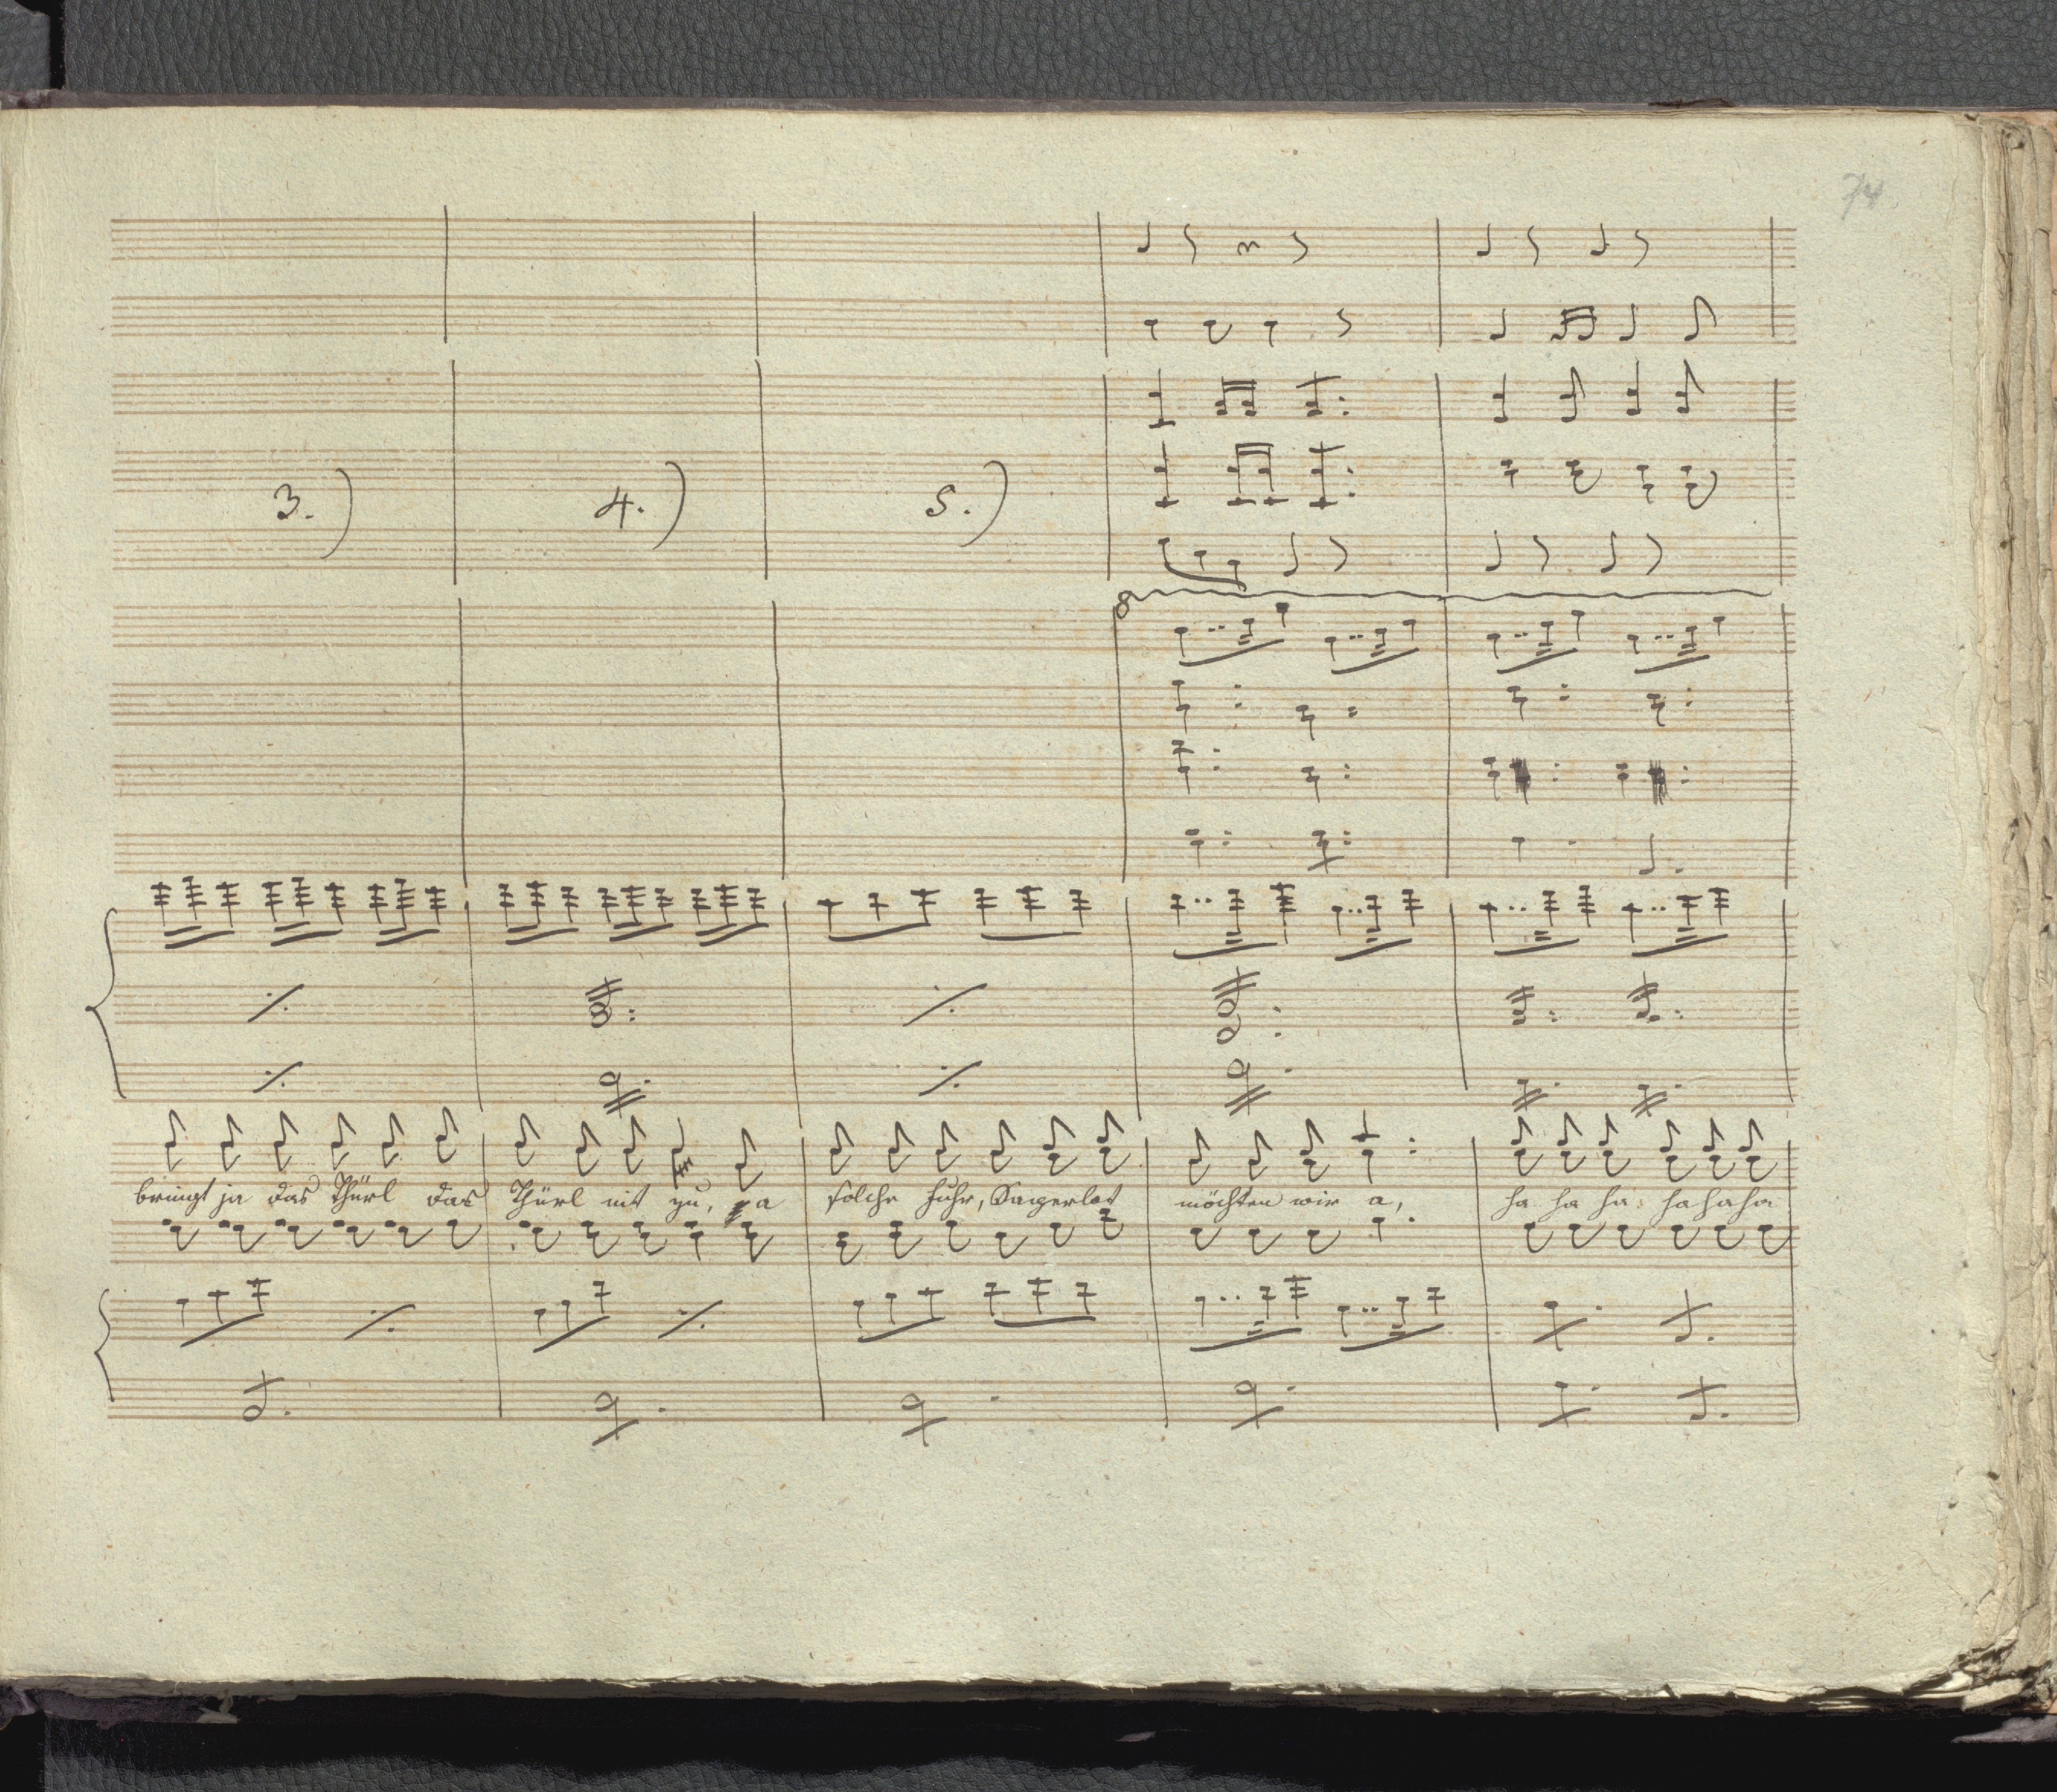 74
3.) 4.) 5.)
8
bringt ja das Thürl das Thürl nit zu, a solche Fuhr, Sagerlot möchten wir a, ha ha ha ha ha ha